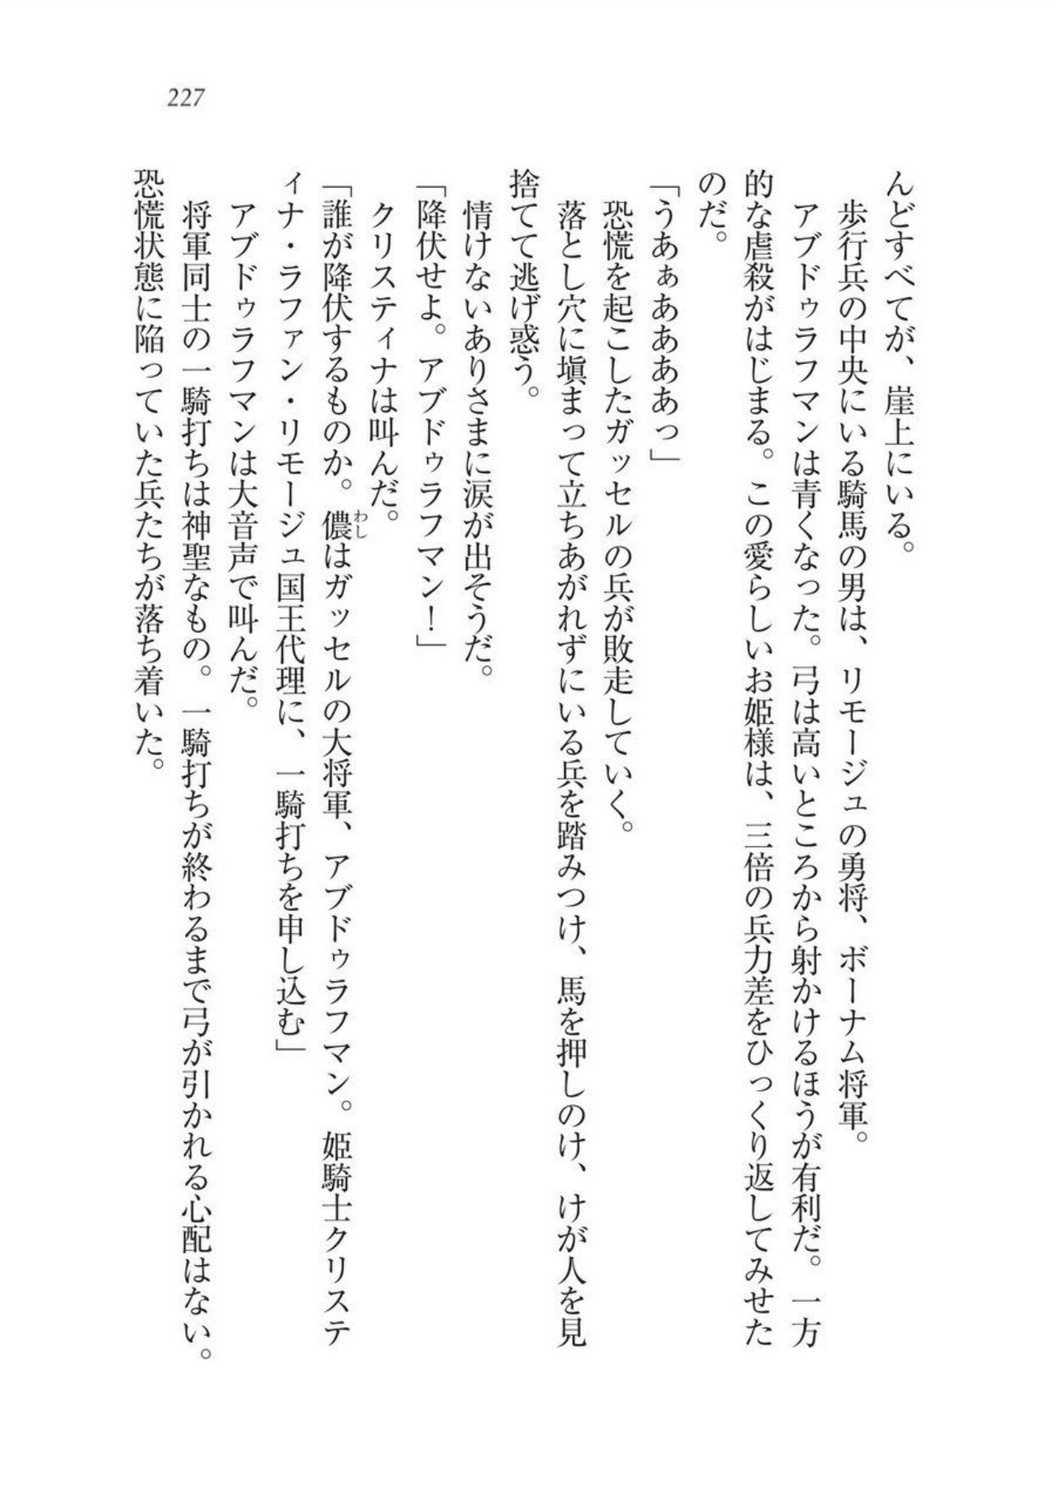 227
んどすべてが、崖上にいる。
歩行兵の中央にいる騎馬の男は、リモージュの勇将、ボーナム将軍。
アブドゥラフマンは青くなった。弓は高いところから射かけるほうが有利だ。一方
的な虐殺がはじまる。この愛らしいお姫様は、三倍の兵力差をひっくり返してみせた
のだ。
「うあぁあああっ」
恐慌を起こしたガッセルの兵が敗走していく。
落とし穴に塡まって立ちあがれずにいる兵を踏みつけ、馬を押しのけ、けが人を見
捨てて逃げ惑う。
情けないありさまに涙が出そうだ。
「降伏せよ。アブドゥラフマン！」
クリスティナは叫んだ。
「誰が降伏するものか。儂はガッセルの大将軍、アブドゥラフマン。姫騎士クリステ
ィナ・ラファン・リモージュ国王代理に、一騎打ちを申し込む」
アブドゥラフマンは大音声で叫んだ。
将軍同士の一騎打ちは神聖なもの。一騎打ちが終わるまで弓が引かれる心配はない。
恐慌状態に陥っていた兵たちが落ち着いた。
わし